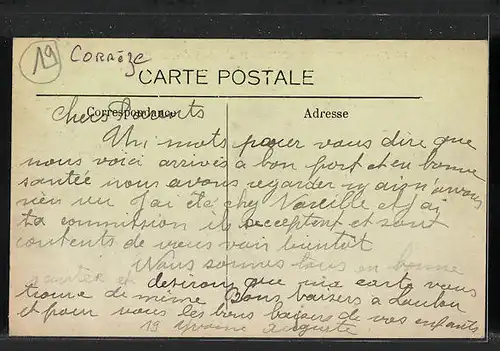 19 CORRÈZE
CARTE POSTALE
Correspondance Adresse
Chers Parents
Un mots pour vous dire que
nous voici arrivés a bon port et en bonne
santée nous avons regarder mais n avons
rien vu J'ai été chez Vareille et J'ai
ta commission ils acceptent et sont
contents de vous voir bientôt
Nous sommes tous en bonne
santée et désirons que ma carte vous
trouve de même Bons baisers a Loulou
et pour vous les bons baisers de vos enfants
19 Yvonne Auguste